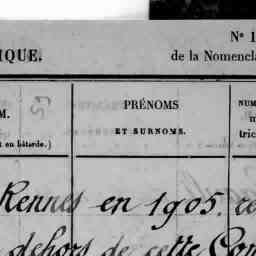 Nº 1
IQUE.
de la Nomencla
M.
PRÉNOMS
ET SURNOMS.
NUM
m
tric
t en bâtarde.)
Rennes en 1905. ce
dehors de cette Com